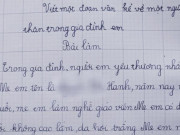 Viết một đoạn văn kể về một người
thân trong gia đình em
Bài làm
Trong gia đình, người em yêu thương nhất
Mẹ em tên là Hạnh, năm nay
tuổi, mẹ em làm nghề giáo viên. Mẹ em có
người không cao lắm, da hơi trắng. Mẹ em